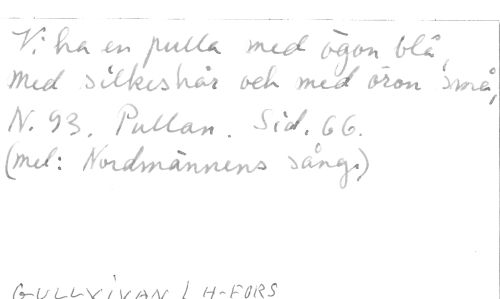 Vi ha en pulla med ögon blå,
med silkeshår och med öron små,
N. 93. Pullan. Sid. 66.
(mel: Nordmännens sång.)
GULLVIVAN / H-FORS